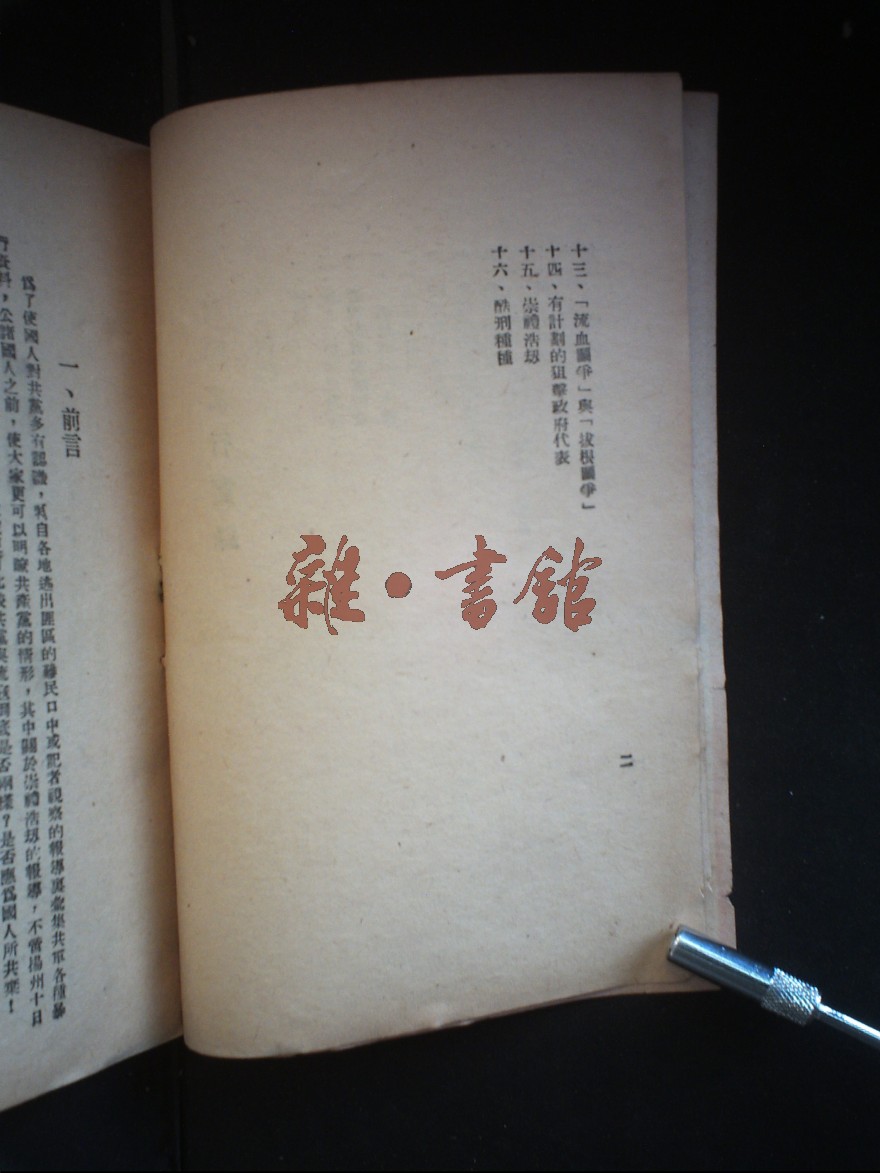 十三、「流血鬭爭」與「拔根鬭爭」
十四、有計劃的狙擊政府代表
十五、崇禮浩刼
十六、酷刑種種
二
雜・書館
一、前言
爲了使國人對共黨多有認識，特自各地逃出匪區的難民口中或記者視察的報導裏彙集共軍各種暴
行資料，公諸國人之前，使大家更可以明瞭共產黨的情形，其中關於崇禮浩刼的報導，不啻揚州十日
是否兩樣？是否應爲國人所共棄！